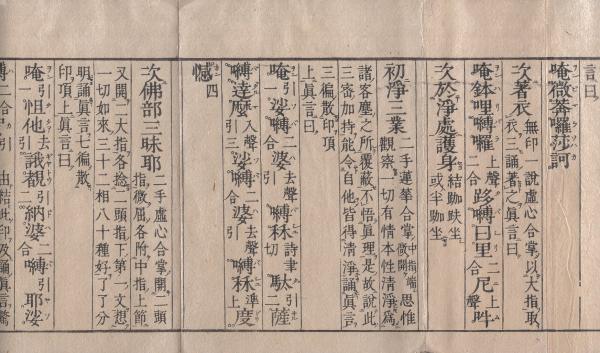 言曰
唵微莾囉莎訶
次著衣 無印 說虛心合掌以大指取
衣三誦著之眞言曰
唵鉢哩嚩囉 上聲 跢嚩日里 二合 尼 上聲 吽
次於淨處護身 結跏趺坐
或半跏坐
初淨三業 二手蓮華合掌 中指端微開 思惟
觀察一切有情本性淸淨爲
諸客塵之所覆蔽不悟眞理是故說此
三密加持能令自他皆得淸淨誦眞言
三徧散印頂
上眞言曰
唵 引一 娑嚩 二合 婆 去聲引 嚩秫 詩聿切 馱 二引 薩
嚩達麼 入聲引三 娑嚩 二合 婆 去聲引 嚩秫 準上 度
憾 四
次佛部三昧耶 二手虛心合掌開二頭
指微屈各附中指上節
又開二大指各捻二頭指下第一文想
一切如來三十二相八十種好了了分
明誦眞言七徧散
印頂上眞言曰
唵 一 怛他 去引 誐覩 引二 納婆 二合 嚩 引 耶娑
嚩 二合引 由結此印及誦眞言驚